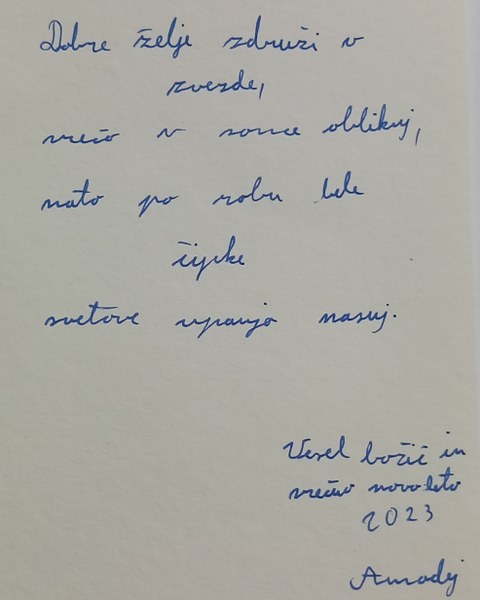 Dobre želje združi v
zvezde,
srečo v sonce oblikuj,
nato po robu bele
čipke
svetove upanja nasuj.
Vesel božič in
srečno novo leto
2023
Amadej